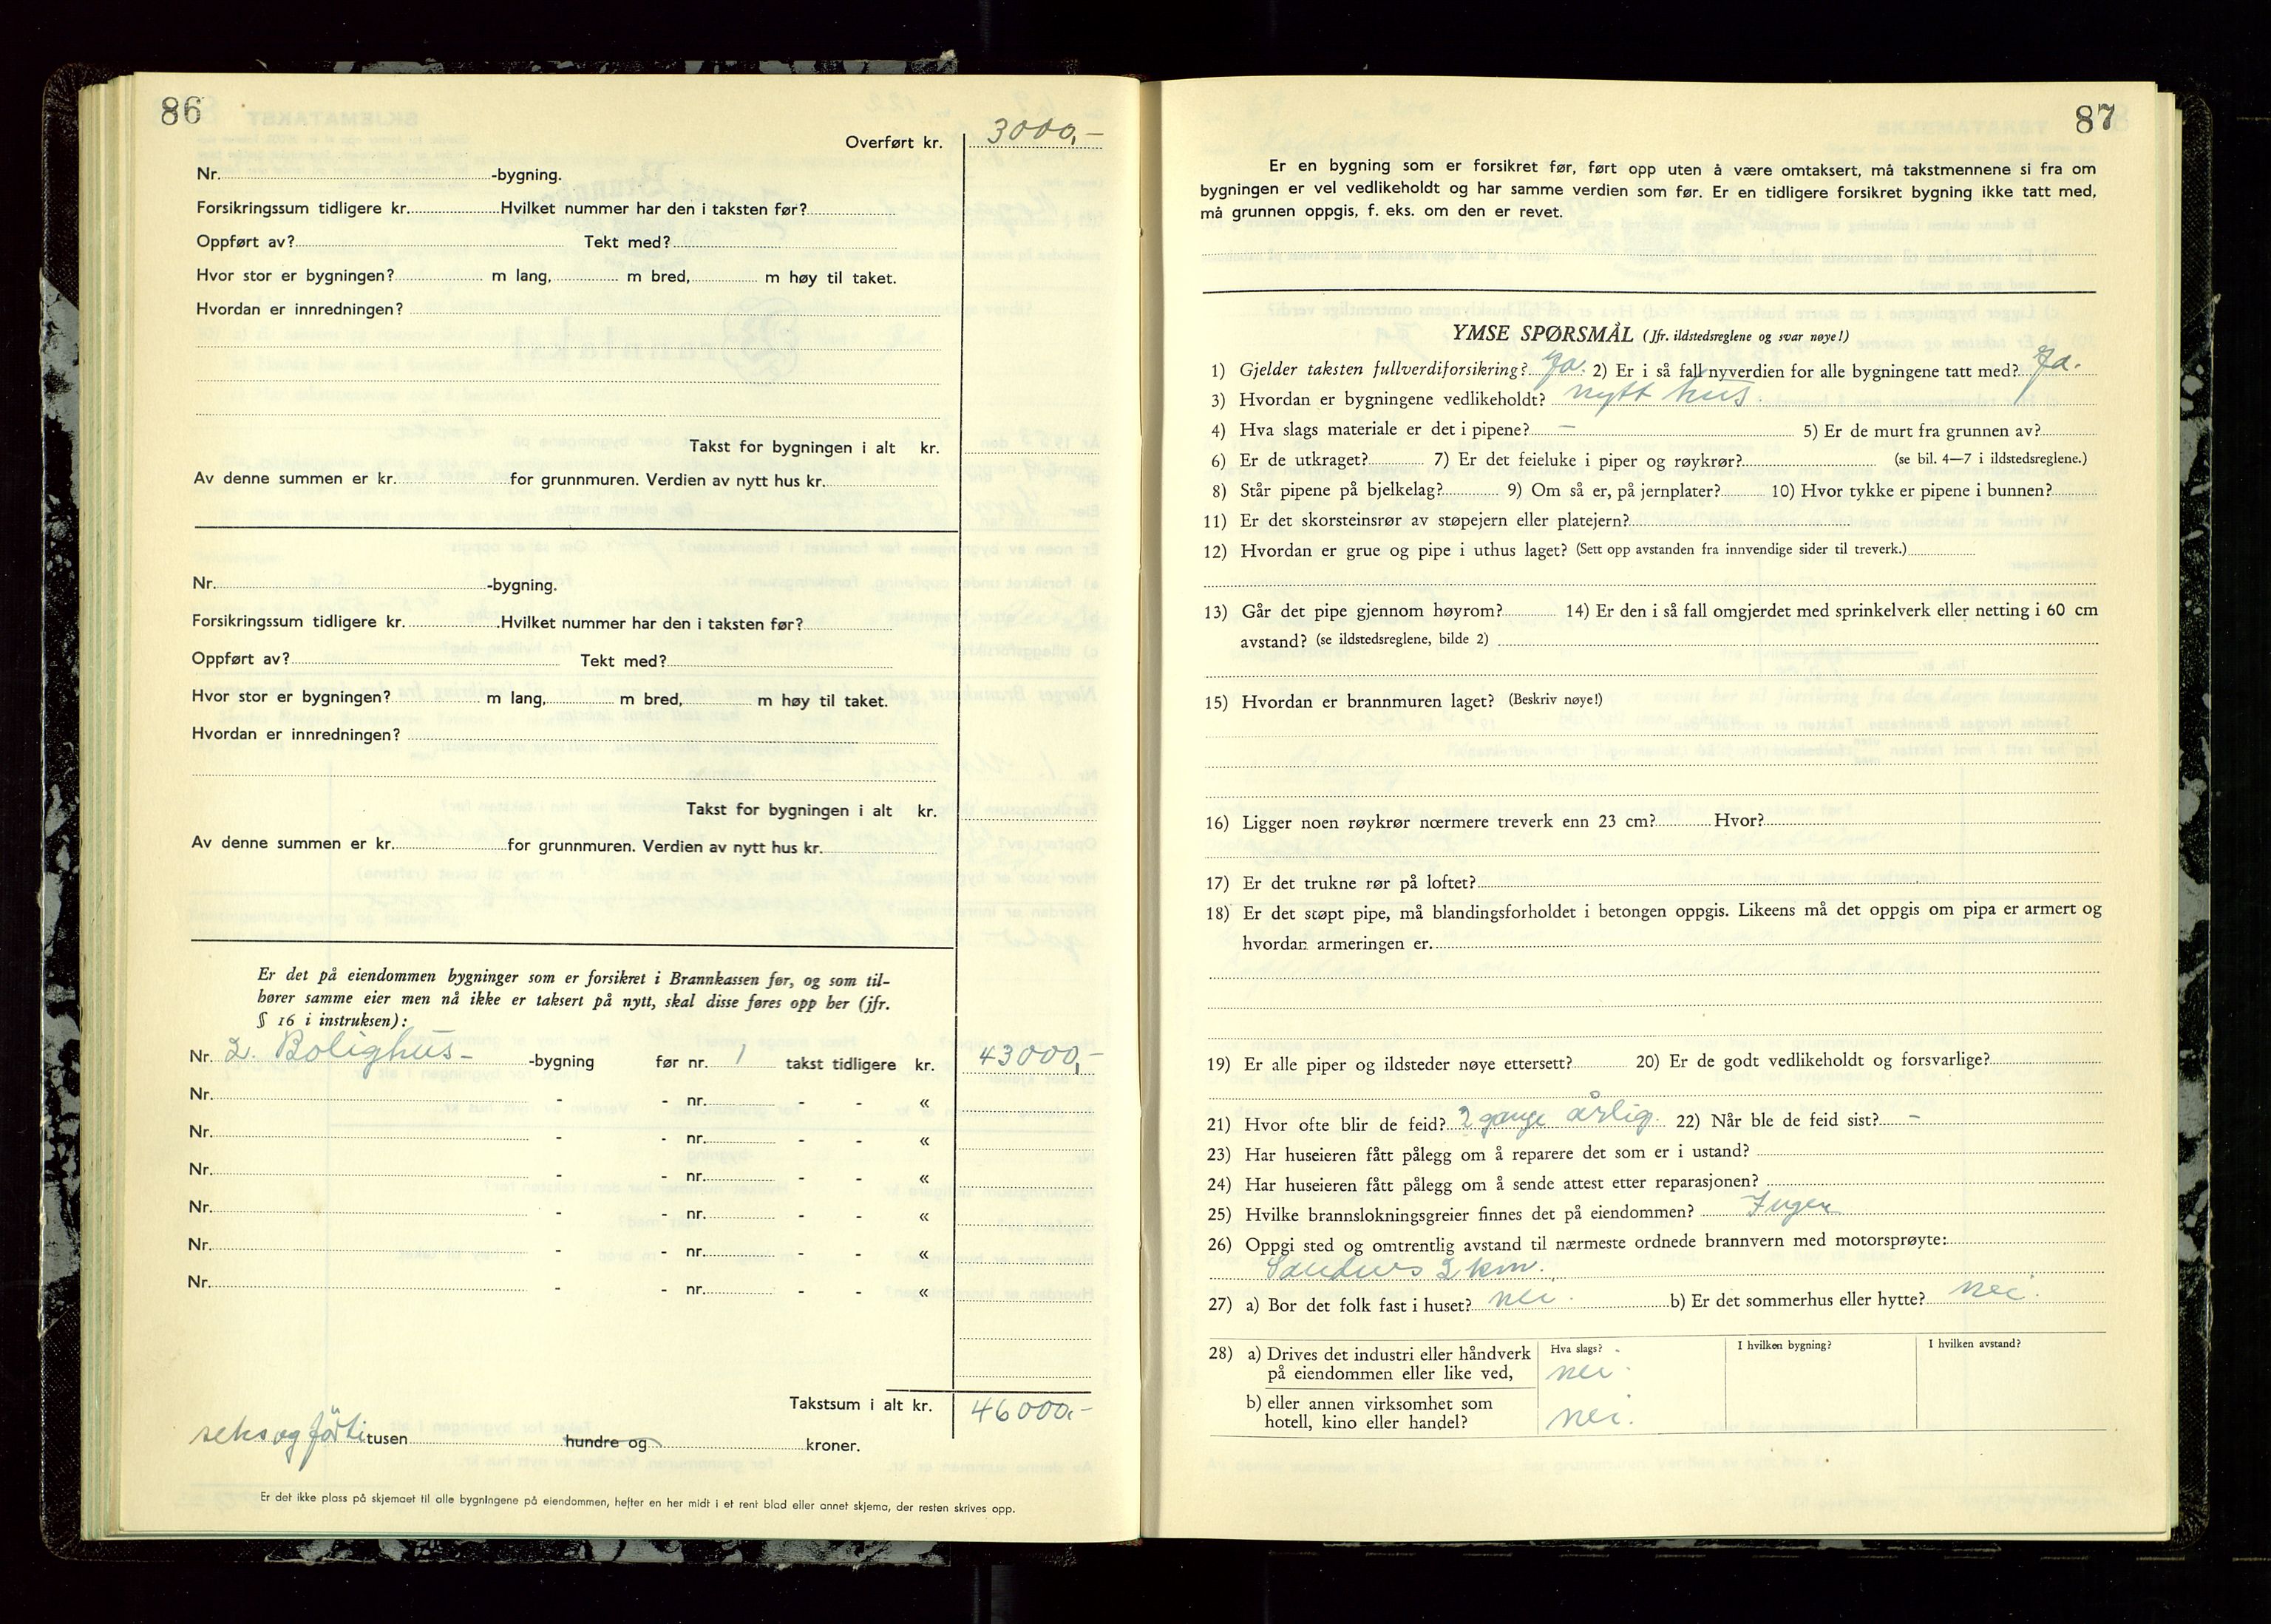 86
Overført kr. 3000,-
Nr. -bygning.
Forsikringssum tidligere kr. Hvilket nummer har den i taksten før?
Oppført av? Tekt med?
Hvor stor er bygningen? m lang, m bred, m høy til taket.
Hvordan er innredningen?
Takst for bygningen i alt kr.
Av denne summen er kr. for grunnmuren. Verdien av nytt hus kr.
Nr. -bygning.
Forsikringssum tidligere kr. Hvilket nummer har den i taksten før?
Oppført av? Tekt med?
Hvor stor er bygningen? m lang, m bred, m høy til taket.
Hvordan er innredningen?
Takst for bygningen i alt kr.
Av denne summen er kr. for grunnmuren. Verdien av nytt hus kr.
Er det på eiendommen bygninger som er forsikret i Brannkassen før, og som til-
hører samme eier men nå ikke er taksert på nytt, skal disse føres opp her (jfr.
§ 16 i instruksen):
Nr. 2. Bolighus- -bygning før nr. 1 takst tidligere kr. 43000,-
Nr. - - nr. - - «
Nr. - - nr. - - «
Nr. - - nr. - - «
Nr. - - nr. - - «
Nr. - - nr. - - «
Nr. - - nr. - - «
Takstsum i alt kr. 46000.-
seks og førti tusen hundre og kroner.
Er det ikke plass på skjemaet til alle bygningene på eiendommen, hefter en her midt i et rent blad eller annet skjema, der resten skrives opp.
87
Er en bygning som er forsikret før, ført opp uten å være omtaksert, må takstmennene si fra om
bygningen er vel vedlikeholdt og har samme verdien som før. Er en tidligere forsikret bygning ikke tatt med,
må grunnen oppgis, f. eks. om den er revet.
YMSE SPØRSMÅL (Jfr. ildstedsreglene og svar nøye!)
1) Gjelder taksten fullverdiforsikring? Ja. 2) Er i så fall nyverdien for alle bygningene tatt med? Ja.
3) Hvordan er bygningene vedlikeholdt? nytt hus.
4) Hva slags materiale er det i pipene? - 5) Er de murt fra grunnen av?
6) Er de utkraget? 7) Er det feieluke i piper og røykrør? (se bil. 4—7 i ildstedsreglene.)
8) Står pipene på bjelkelag? 9) Om så er, på jernplater? 10) Hvor tykke er pipene i bunnen?
11) Er det skorsteinsrør av støpejern eller platejern?
12) Hvordan er grue og pipe i uthus laget? (Sett opp avstanden fra innvendige sider til treverk.)
13) Går det pipe gjennom høyrom? 14) Er den i så fall omgjerdet med sprinkelverk eller netting i 60 cm
avstand? (se ildstedsreglene, bilde 2)
15) Hvordan er brannmuren laget? (Beskriv nøye!)
16) Ligger noen røykrør nærmere treverk enn 23 cm? Hvor?
17) Er det trukne rør på loftet?
18) Er det støpt pipe, må blandingsforholdet i betongen oppgis. Likeens må det oppgis om pipa er armert og
hvordan armeringen er.
19) Er alle piper og ildsteder nøye ettersett? 20) Er de godt vedlikeholdt og forsvarlige?
21) Hvor ofte blir de feid? 2 gange årlig. 22) Når ble de feid sist? -
23) Har huseieren fått pålegg om å reparere det som er i ustand?
24) Har huseieren fått pålegg om å sende attest etter reparasjonen?
25) Hvilke brannslokningsgreier finnes det på eiendommen? Ingen
26) Oppgi sted og omtrentlig avstand til nærmeste ordnede brannvern med motorsprøyte:
Sandnes 2 km.
27) a) Bor det folk fast i huset? nei. b) Er det sommerhus eller hytte? nei.
28) a) Drives det industri eller håndverk Hva slags? I hvilken bygning? I hvilken avstand?
på eiendommen eller like ved, nei.
b) eller annen virksomhet som
hotell, kino eller handel? nei.